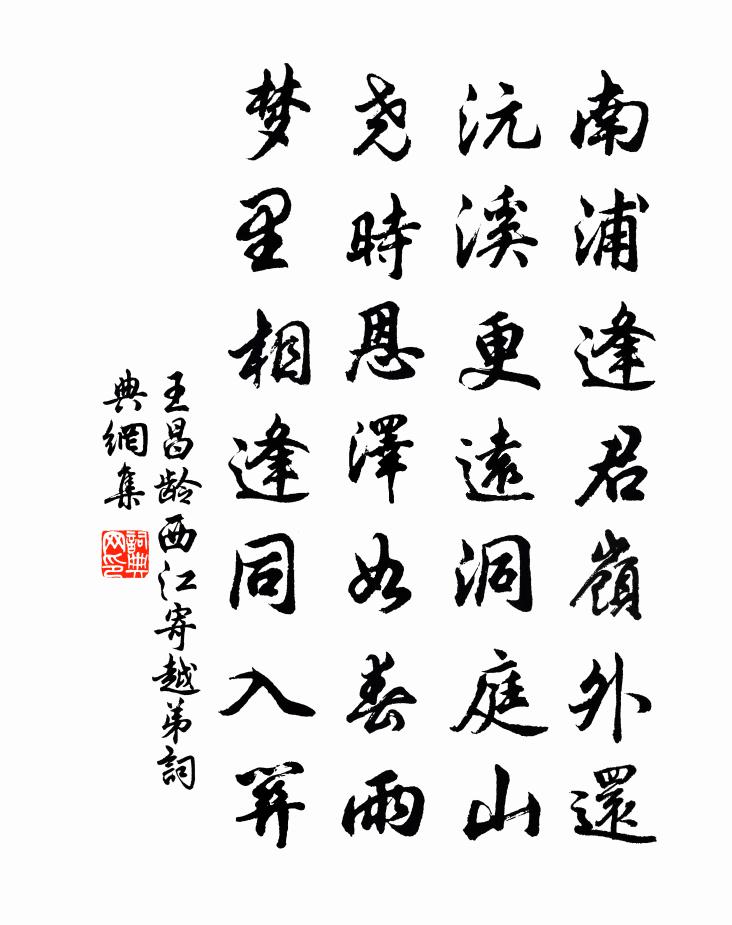 南浦逢君嶺外還
沅溪更遠洞庭山
尧時恩澤如春雨
梦里相逢同入關
王昌龄西江寄越弟詞
典網集
詞典
网印